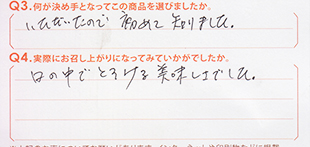 Q3.何が決め手となってこの商品を選びましたか。
いただいたので 初めて 知りました。
Q4.実際にお召し上がりになってみていかがでしたか。
口の中でとろける美味しさでした。